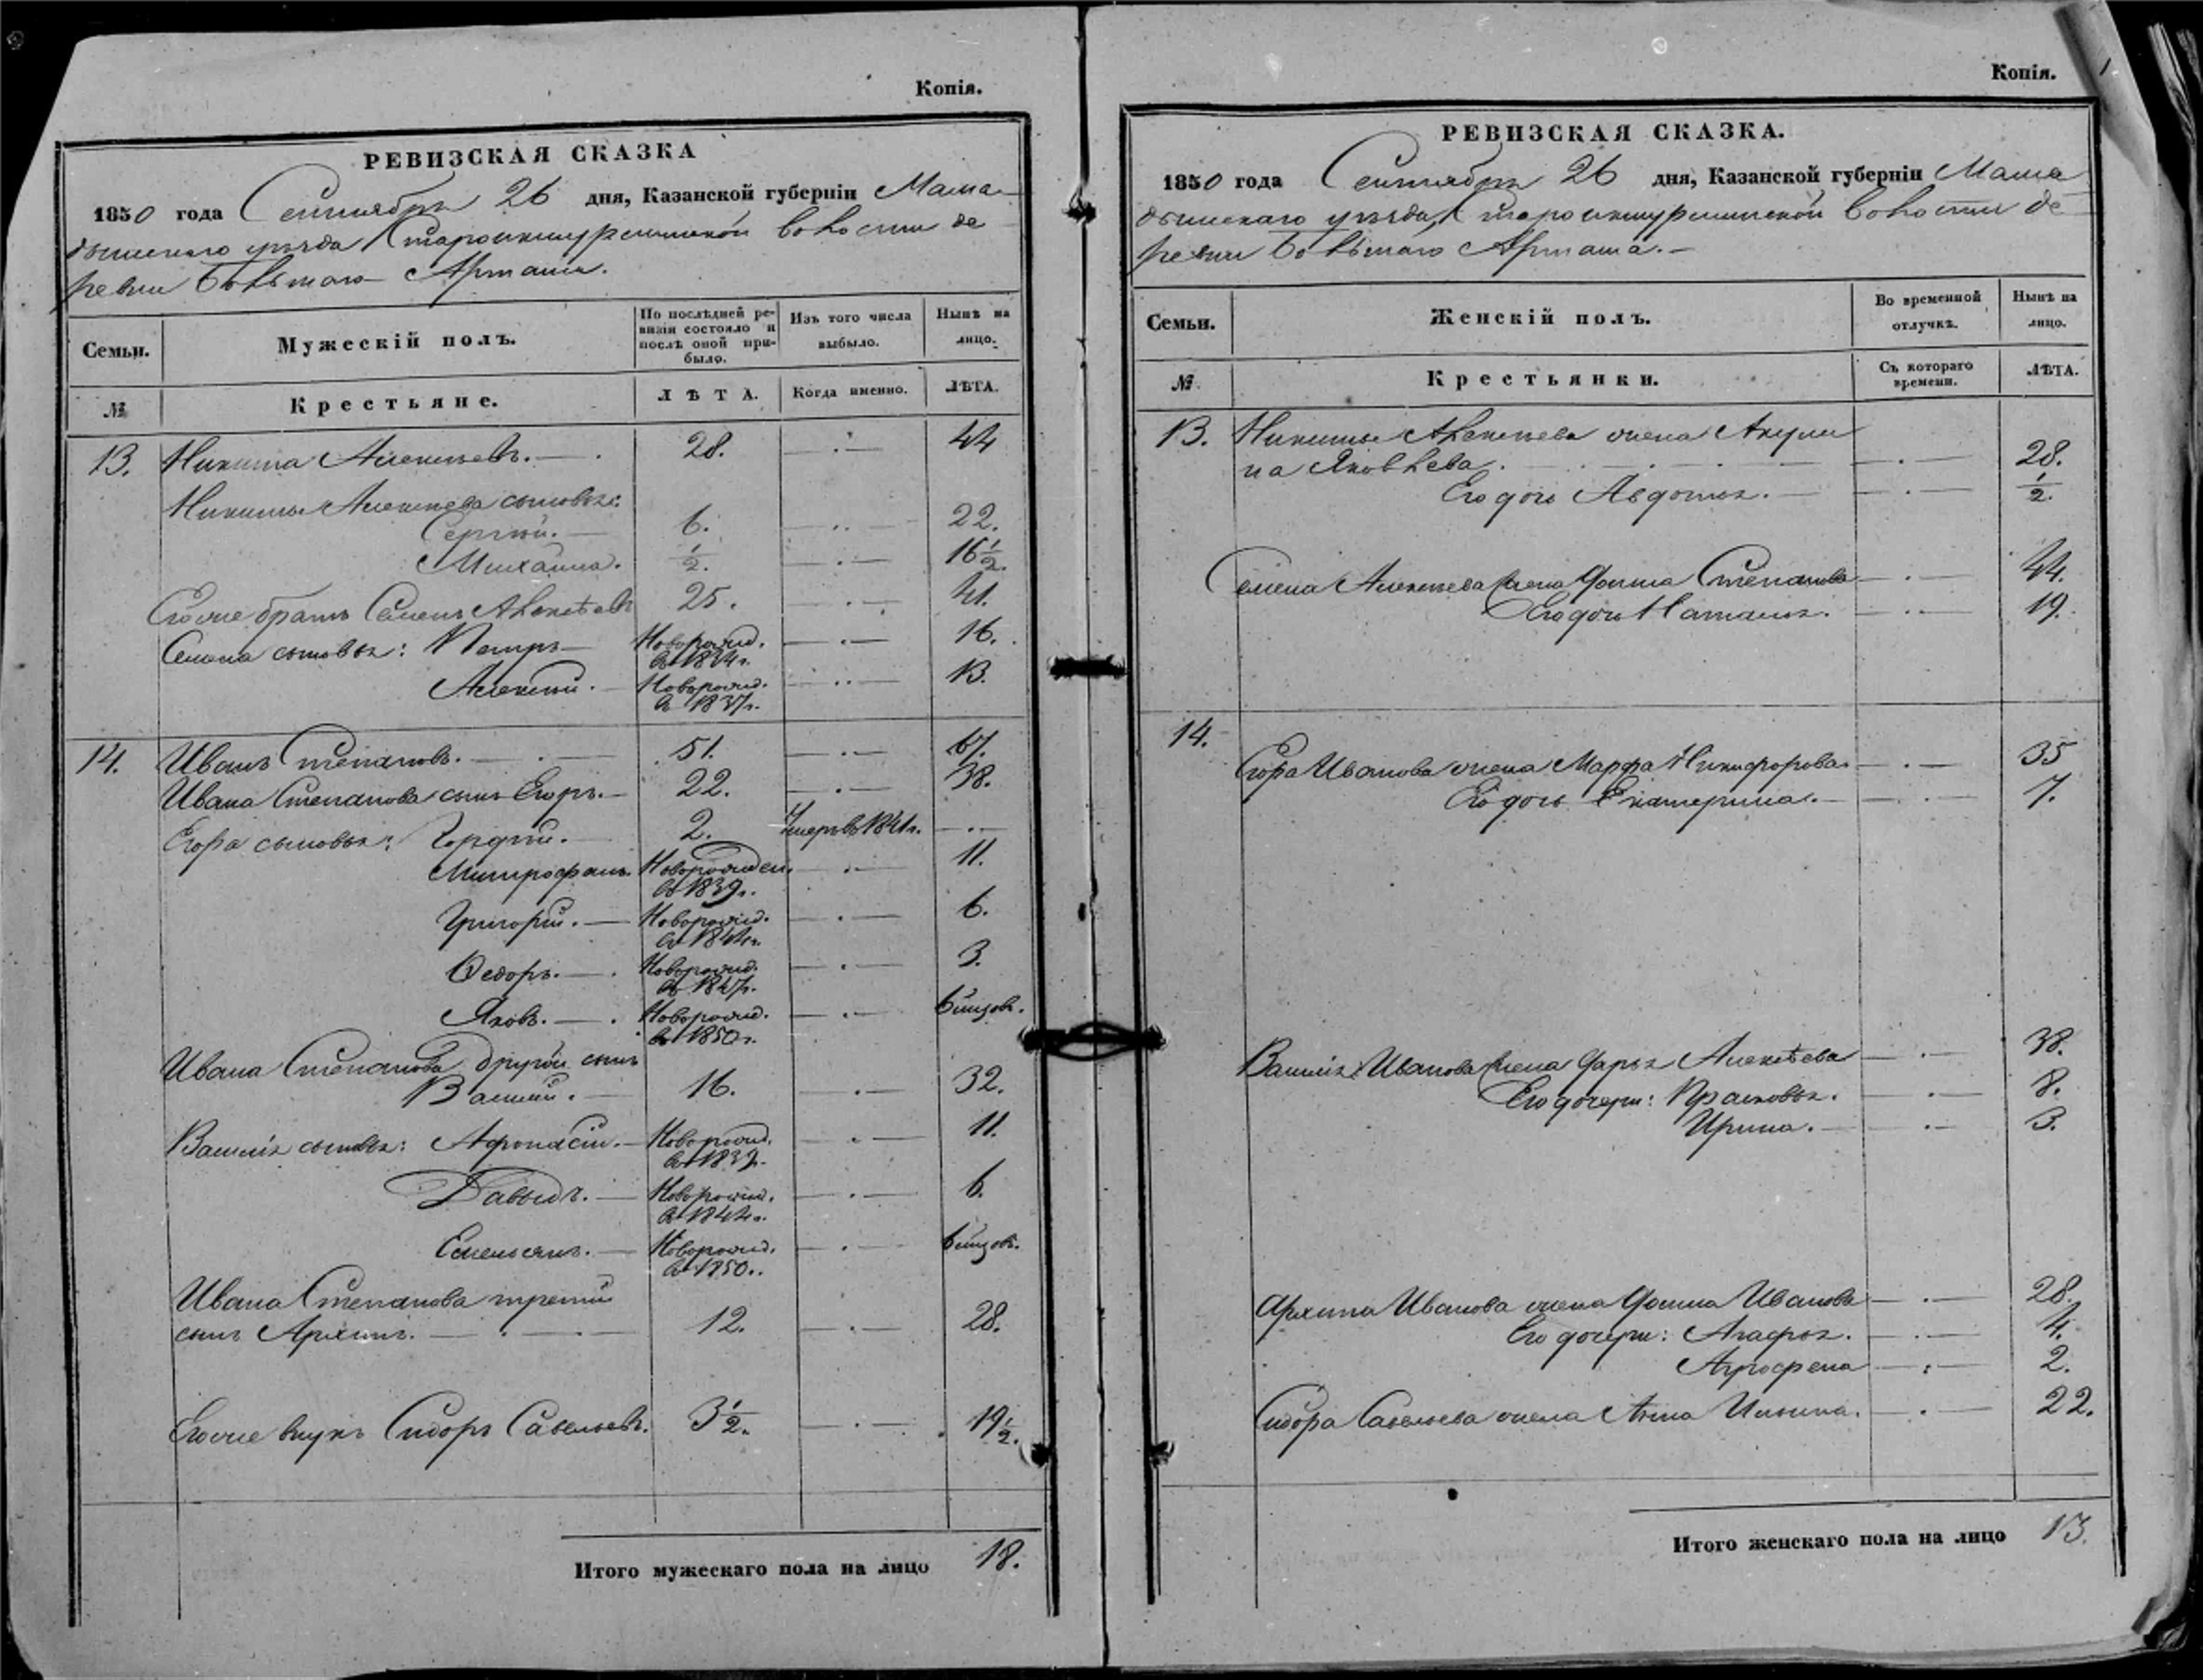 Копія.
РЕВИЗСКАЯ СКАЗКА
1850 года Сентября 26 дня, Казанской губерніи Мама-
дышскаго уѣзда Старо икшурминской волости де
ревни Большаго Арташа.
Семьи.
Мужескій полъ.
По послѣдней ре-
визіи состояло и
послѣ оной при-
было.
Изъ того числа
выбыло.
Нынѣ на
лицо.
№
Крестьяне.
ЛѢТА.
Когда именно.
ЛѢТА.
13. Никита Алексѣевъ. 28. 44
Никиты Алексѣева сыновья:
Сергѣй. 6. 22.
Михайла. 1/2. 16 1/2.
Его же братъ Семенъ Алексѣевъ 25. 41.
Семена сыновья: Петръ Новорожд. 16.
въ 1834 г.
Алексѣй. Новорожд. 13.
въ 1837 г.
14. Иванъ Степановъ. 51. 67.
Ивана Степанова сынъ Егоръ. 22. 38.
Егора сыновья: Гордѣй. 2. Умеръ въ 1841 г.
Митрофанъ. Новорожден. 11.
въ 1839 г.
Григорій. Новорожд. 6.
въ 1844 г.
Федоръ. Новорожд. 3.
въ 1847 г.
Яковъ. Новорожд. 6 мцовъ.
въ 1850 г.
Ивана Степанова другой сынъ
Василій. 16. 32.
Василія сыновья: Афонасій. Новорожд. 11.
въ 1839 г.
Давыдъ. Новорожд. 6.
въ 1844 г.
Емельянъ. Новорожд. 6 мцовъ.
въ 1850 г.
Ивана Степанова третій
сынъ Архипъ. 12. 28.
Его же внукъ Сидоръ Савельевъ. 3 1/2. 19 1/2.
Итого мужескаго пола на лицо 18.
Копія.
РЕВИЗСКАЯ СКАЗКА.
1850 года Сентября 26 дня, Казанской губерніи Мама
дышскаго уѣзда, Старо икшурминской волости де
ревни Большаго Арташа.
Семьи.
Женскій полъ.
Во временной
отлучкѣ.
Нынѣ на
лицо.
№
Крестьянки.
Съ котораго
времени.
ЛѢТА.
13. Никиты Алексѣева жена Акули
на Яковлева. 28.
Его дочь Авдотья. 1/2.
Семена Алексѣева жена Фоина Степанова 44.
Его дочь Наталья. 19.
14.
Егора Иванова жена Марфа Никифорова 35
Его дочь Екатерина. 7.
Василія Иванова жена Дарья Алексѣева 38.
Его дочери: Прасковья. 8.
Ирина. 3.
Архипа Иванова жена Фоина Иванова 28.
Его дочери: Агафья. 4.
Агрофена 2.
Сидора Савельева жена Анна Ильина. 22.
Итого женскаго пола на лицо 13.